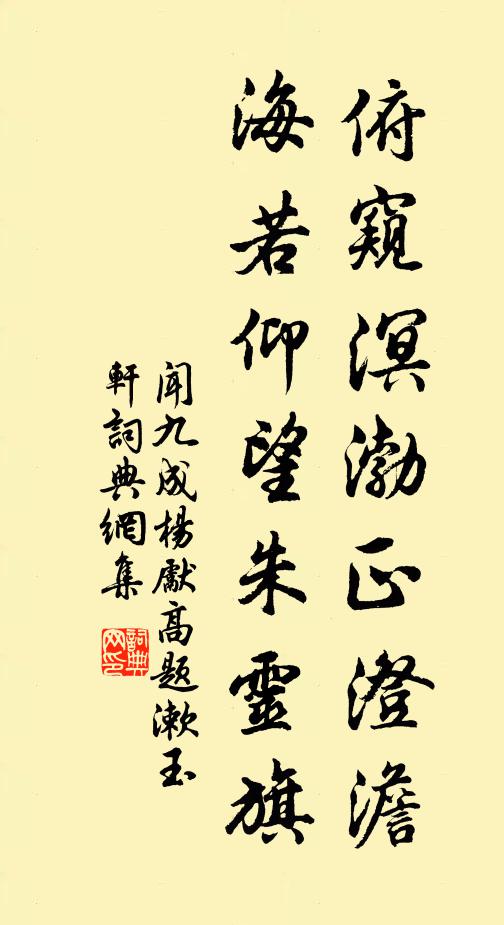 俯窺溟渤正澄澹
海若仰望朱靈旗
聞九成楊獻高題漱玉
軒詞典網集
詞典网印